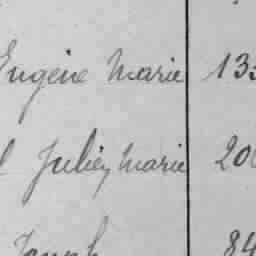 Eugène Marie 13
l Julien Marie 20
Joseph 84